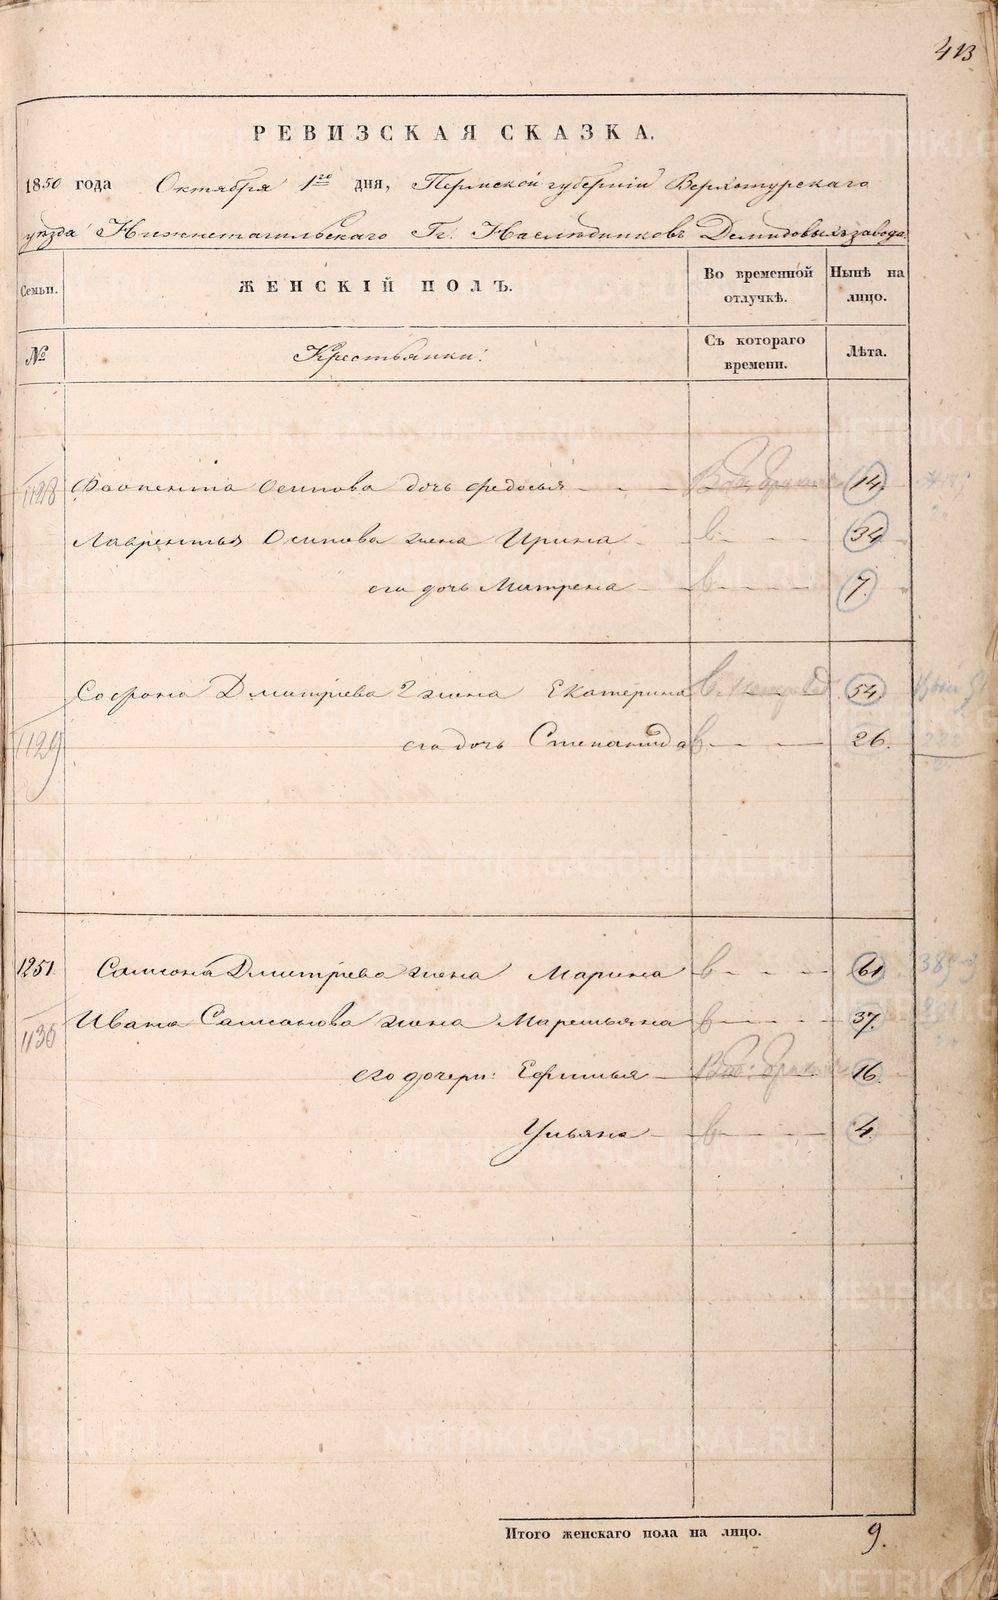 413
РЕВИЗСКАЯ СКАЗКА.
1850 года Октября 1го дня, Пермской губерніи Верхотурскаго
уѣзда Нижнетагильскаго Гг. Наслѣдниковъ Демидовыхъ завода
Семьи. ЖЕНСКІЙ ПОЛЪ. Во временной отлучкѣ. Нынѣ на лицо.
№ Крестьянки: Съ котораго времени. Лѣта.
1128 Осипова дочь Федосья 14.
Лаврентья Осипова жена Ирина в 34
его дочь Матрена в 7.
Софрона Дмитріева 2 жена Екатерина в 54.
1129 его дочь Степанида в 26.
1251 Самсона Дмитріева жена Марина в 61
1130 Ивана Самсонова жена Маремьяна в 37.
его дочери: Ефимья 16.
Ульяна в 4
Итого женскаго пола на лицо. 9.
METRIKI.GASO-URAL.RU